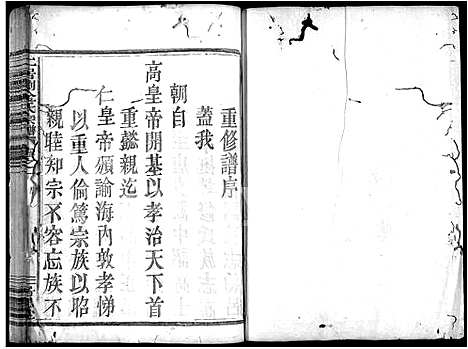 重修譜序
蓋我
朝自
高皇帝開基以孝治天下首
重懿親迄
仁皇帝頒諭海內敦孝悌
以重人倫篤宗族以昭
親睦知宗不容忘族不